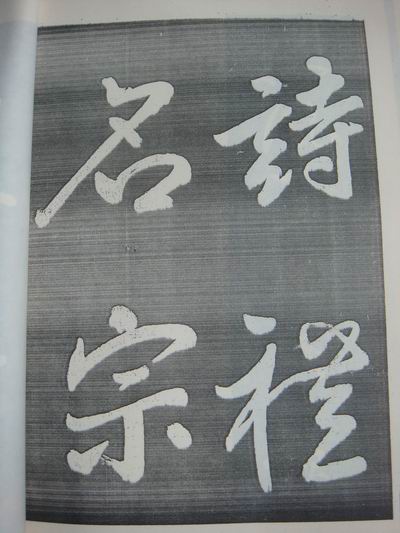 詩禮
名宗